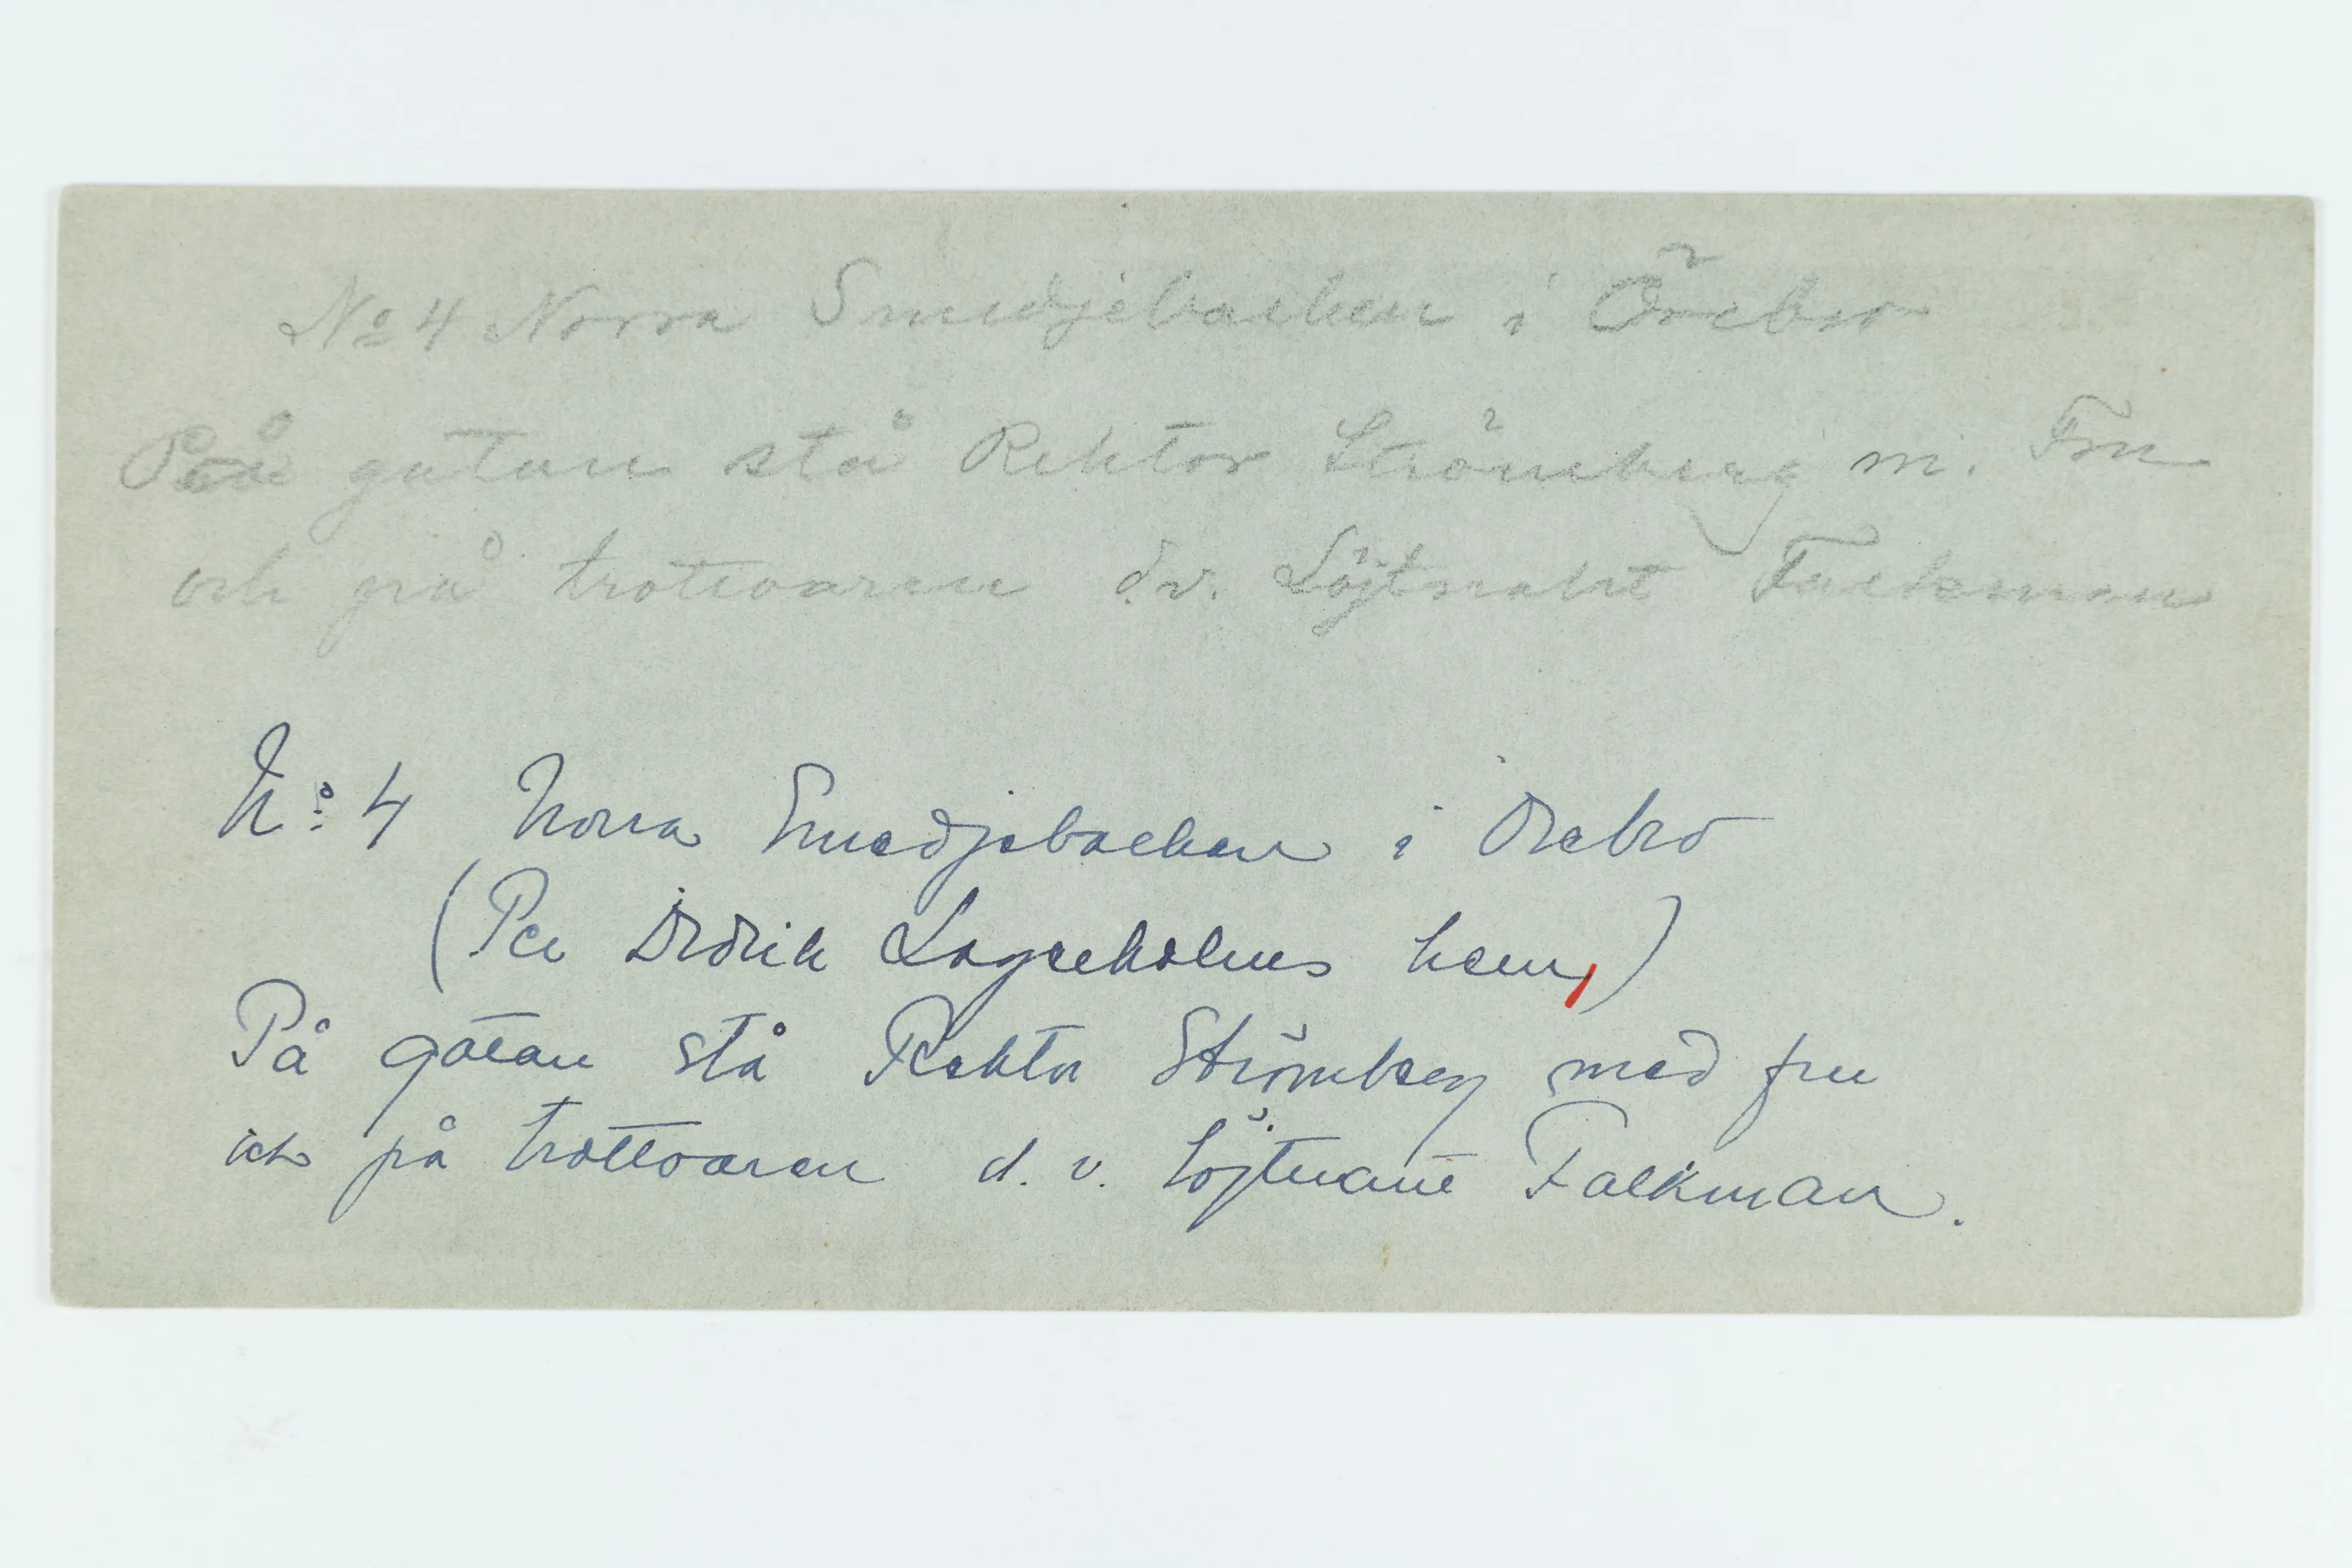 No 4 Norra Smedjebacken i Örebro
På gatan stå Rektor Strömberg m. Fru
och på trotioaren d.v. Löjtnant Falkman
No: 4 Norra Smedjebacken i Örebro
(Per Didrik Lagerholms hem,)
På gatan stå Rektor Strömberg med fru
och på trottoaren d. v. Löjtnant Falkman.